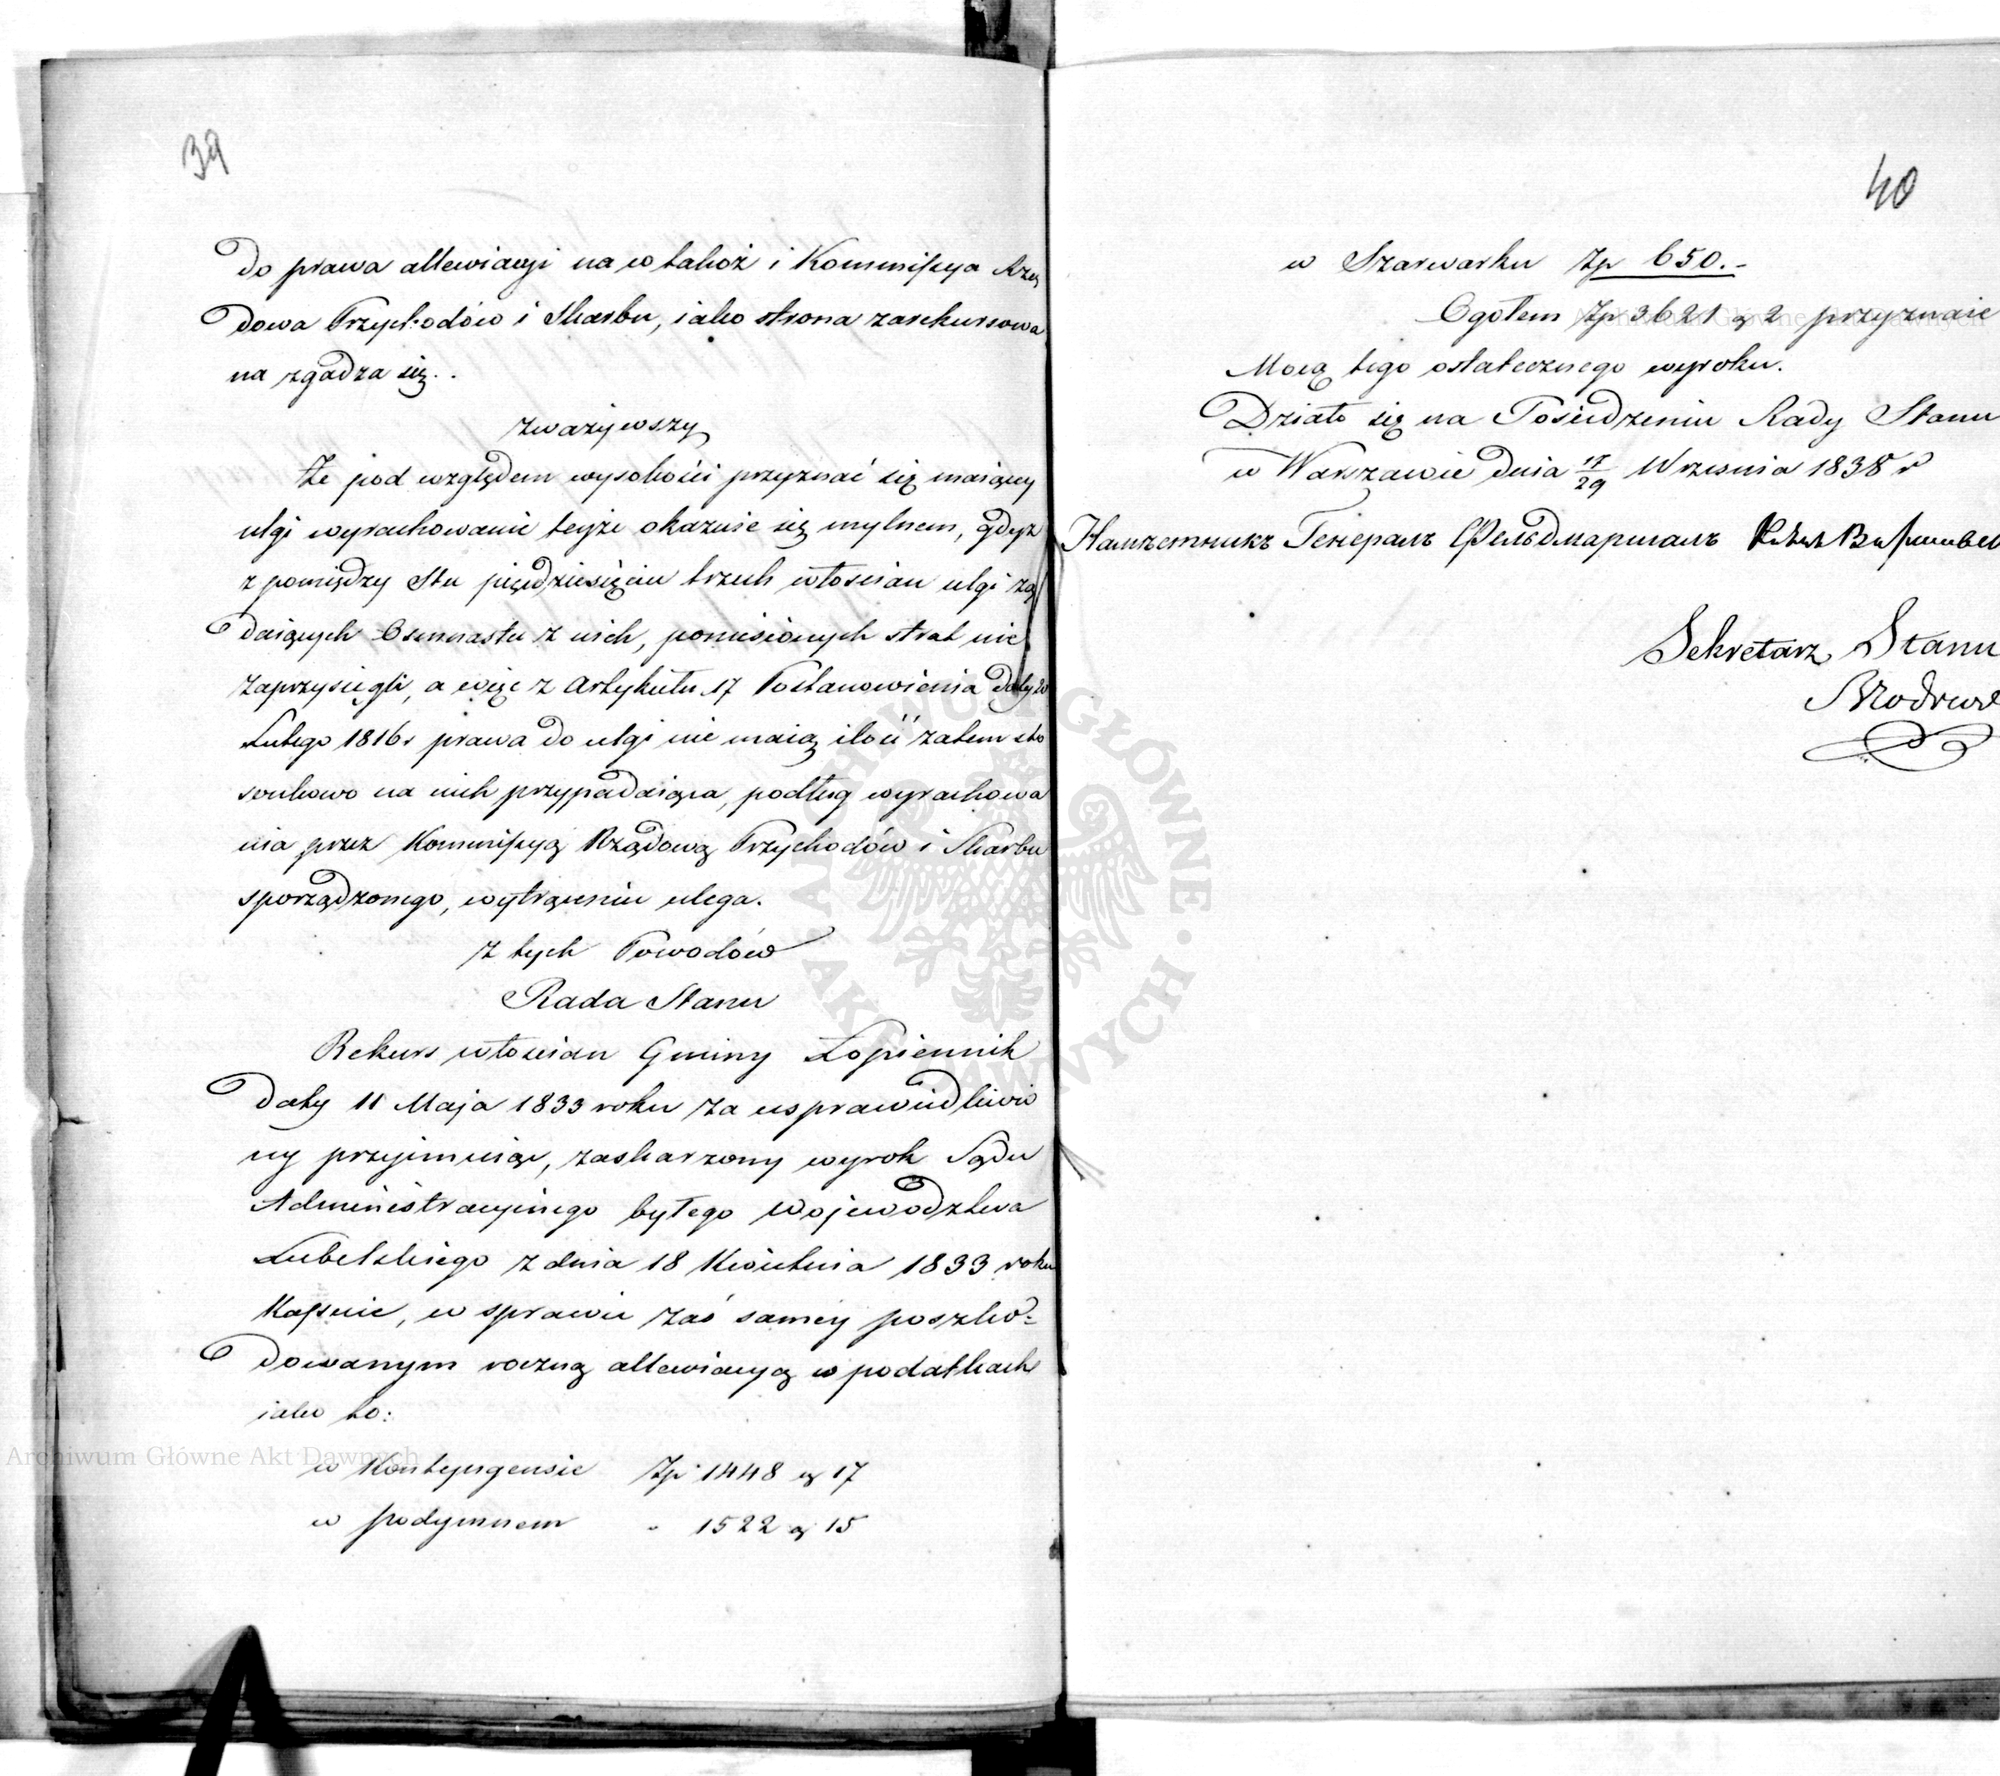 39
do prawa allewiacyi na co takoż i Kommissya Rzą
dowa Przychodów i Skarbu, iako strona zarekursowa
na zgadza się.
zważywszy
Że pod względem wysokości przyznać się maiącey
ulgi wyrachowanie teyże okazuie się mylnem, gdyż
z pomiędzy Stu pięćdziesięciu trzech włościan ulgi żą
daiących Osmnastu z nich, poniesionych strat nie
zaprzysięgli, a więc z Artykułu 17 Postanowienia daty 20
Lutego 1816 r prawa do ulgi nie maią ilość zatem sto
sunkowo na nich przypadaiąca, podług wyrachowa
nia przez Kommissyą Rządową Przychodów i Skarbu
sporządzonego, wytrąceniu ulega.
Z tych Powodów
Rada Stanu
Rekurs włościan Gminy Łopiennik
daty 11 Maja 1833 roku za usprawiedliwio
ny przyimuiąc, zaskarzony wyrok Sądu
Administracyinego byłego Województwa
Lubelskiego z dnia 18 Kwietnia 1833 roku
Kassuie, w sprawie zaś samey poszko-
dowanym roczną allewiacyą w podatkach
iako to:
w Kontyngensie Zp 1448 gr 17
w podymnem " 1522 gr 15
40
w Szarwarku Zp 650.-
Ogołem Zp 3621 gr 2 przyznaie
Mocą tego ostatecznego wyroku.
Działo się na Posiedzeniu Rady Stanu
w Warszawie dnia 17/29 Wrzesnia 1838 r
Намѣстникъ Генералъ Фельдмаршалъ
Sekretarz Stanu
ARCHIWUM GŁÓWNE AKT DAWNYCH
Archiwum Główne Akt Dawnych
Archiwum Główne Akt Dawnych